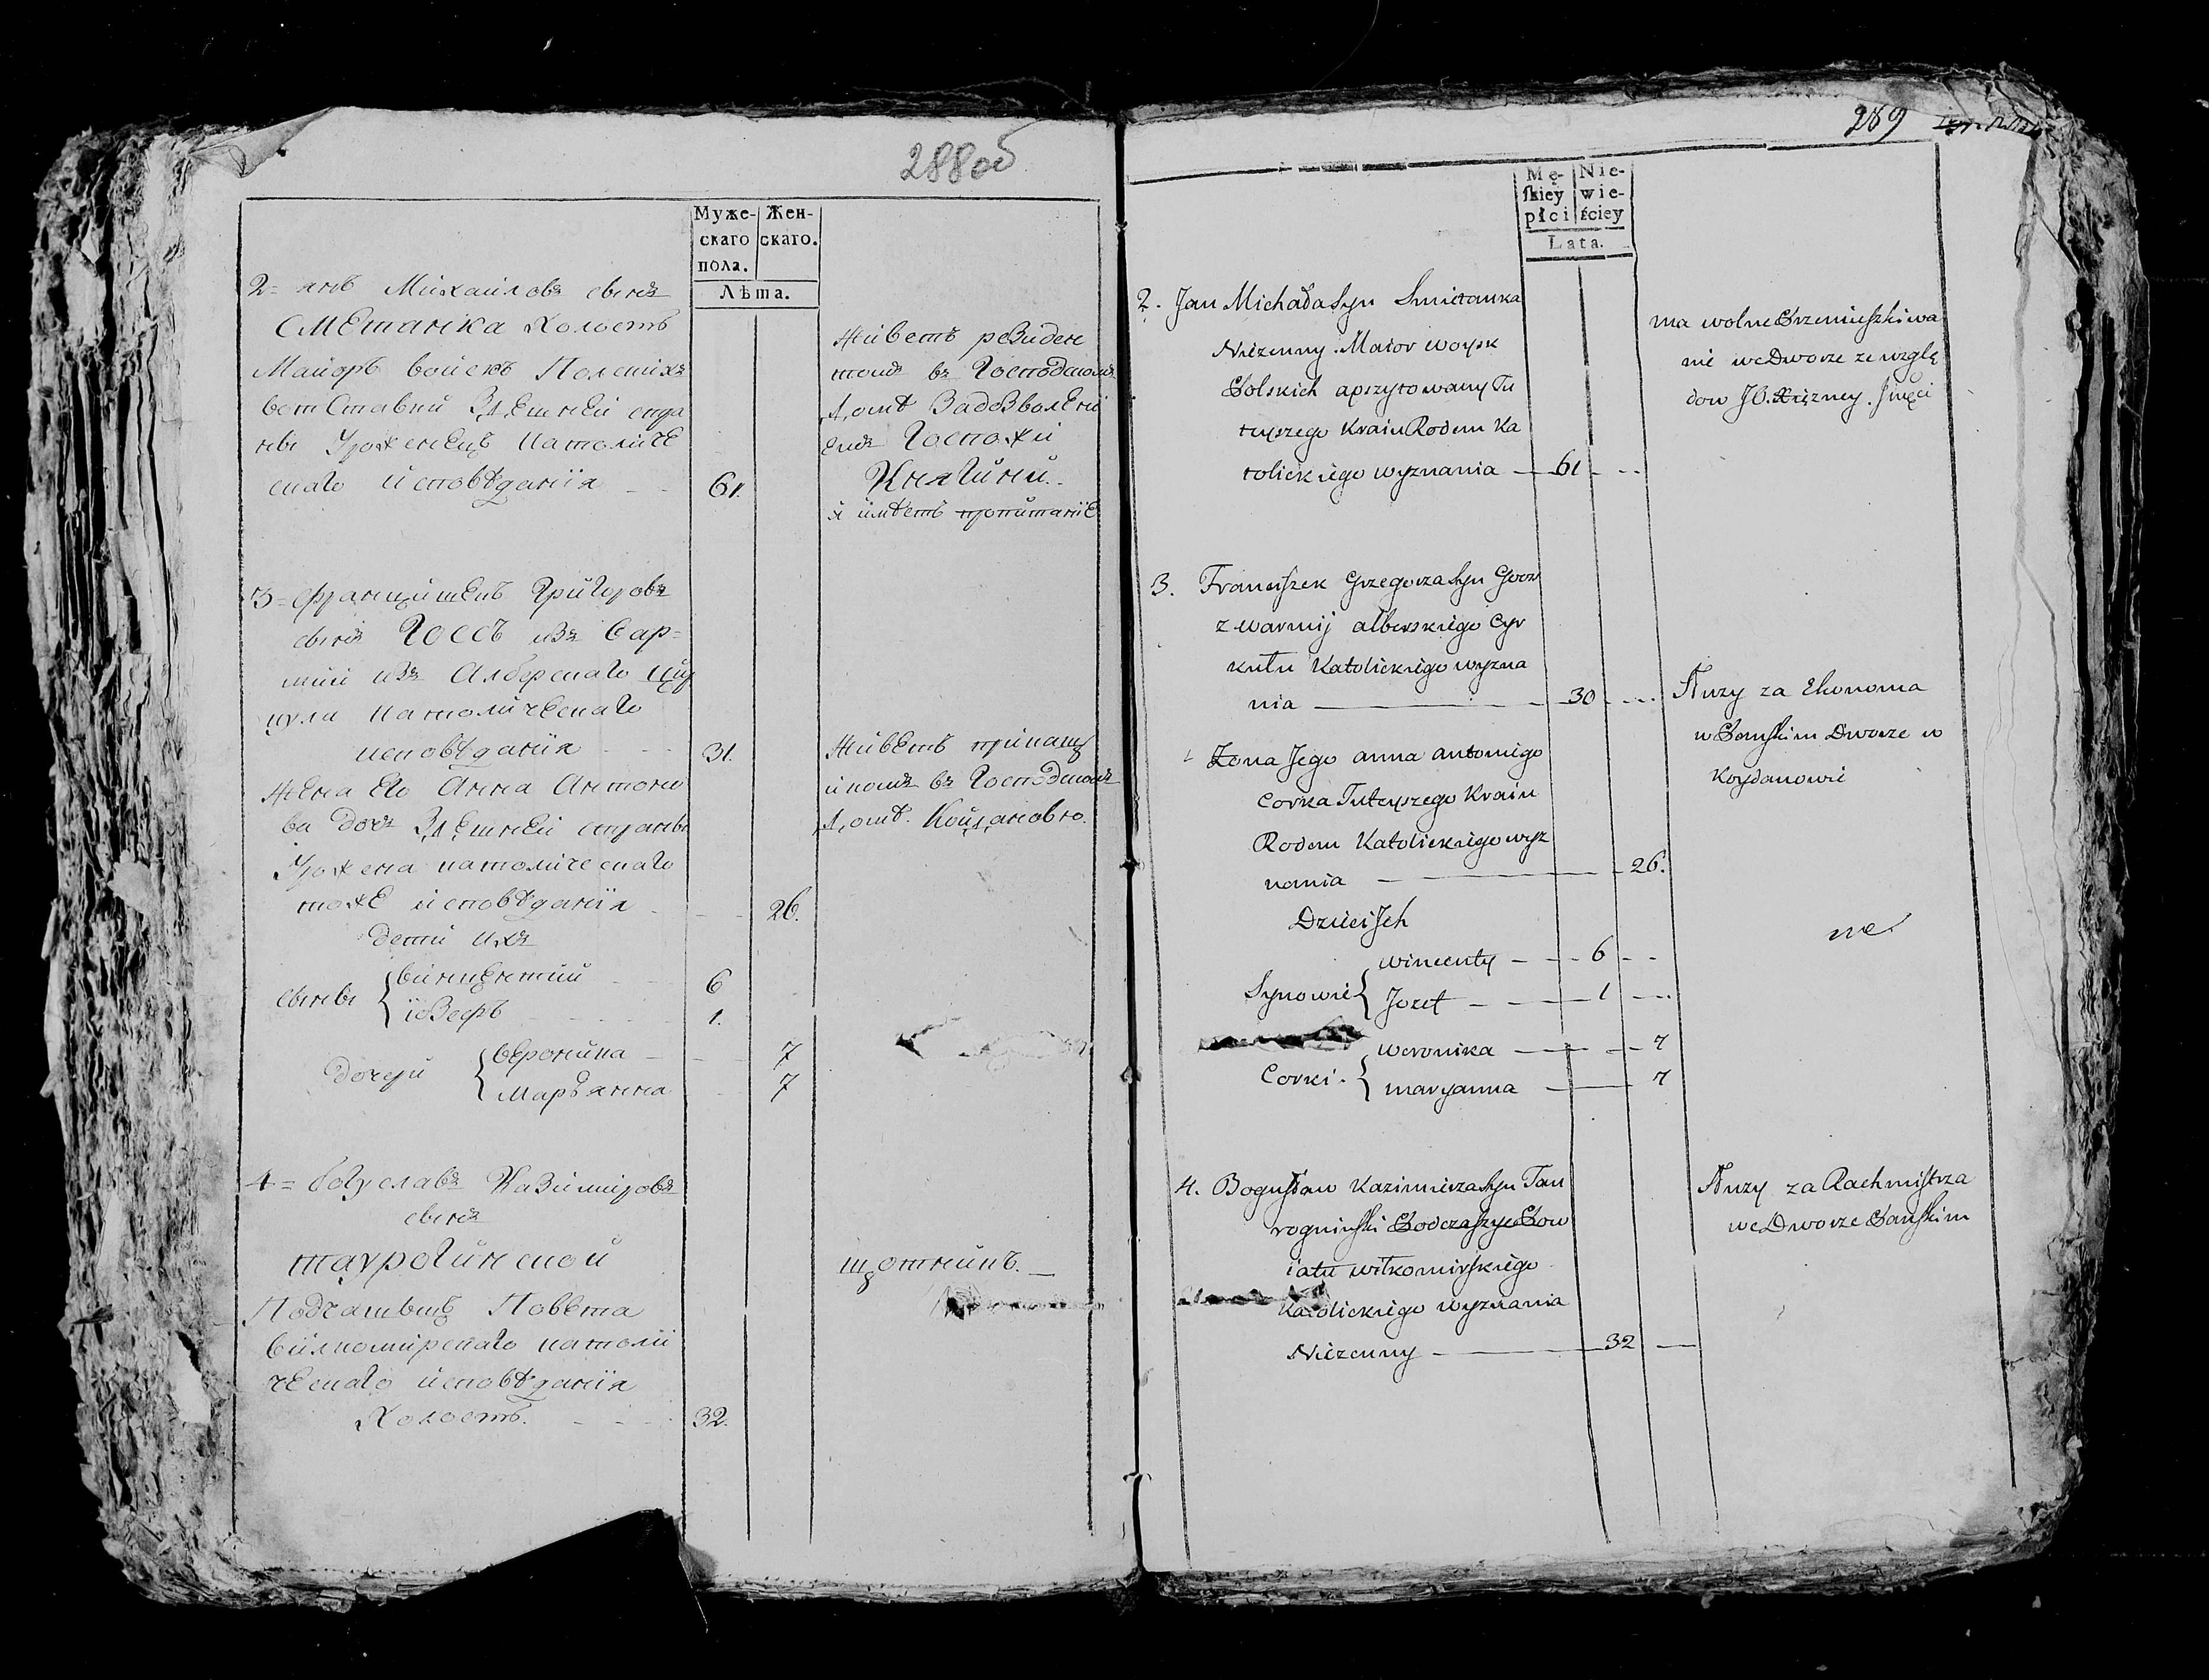 288об
Муже-
скаго
пола.
Жен-
скаго.
Лѣта.
2= янъ Михаиловъ сынъ
Сметанка холостъ
Маиоръ воискъ Полскихъ
вотставки Здешнеи стра
ны Уроженецъ католиче
скаго исповѣданiя - - 61.
Живетъ резиден
томъ въ Господскомъ
домѣ
Госпожи
Княгини.
и имѣетъ пропитанiе
3= Францишекъ Григоровъ
сынъ Госсъ изъ Вар=
мии изъ Алберскаго цир
кула католическаго
исповѣданiя - - - 31.
Жена его Анна Антоно
ва дочь Здешнеи страны
Урожена католическаго
тоже исповѣданiя - - - 26.
дети ихъ
сыны
винцентии - - 6
iозефъ - - - - 1.
дочери
вероника - - - 7
Маръянна - - 7
Живетъ
въ Господскомъ
домѣ Койдановѣ.
4= богуславъ Казимировъ
сынъ
таурогинской
Подчашыц Повета
вилкомирскаго католи
ческаго исповѣданiя
Холостъ. - - - 32.
щотникъ. —
289
Mę-
ſkiey
płci
Nie-
wie-
ściey
Lata.
2. Jan Michała Syn Smietanka
Nieżenny Maior woysk
Polskich apszytowany Tu
teyszego Kraiu Rodem Ka
tolickiego wyznania — 61 - - -
ma wolne Przemieszkiwa
nie we Dworze ze wzglę
dow JO. Xiężney Jmęci
3. Franciszek Grzegorza Syn Goos
z warmij alberskiego Cyr
kułu Katolickiego wyzna
nia — 30 - - -
Służy za Ekonoma
w Pańskim Dworze w
Koydanowie
Zona Jego anna antoniego
Corka Tuteyszego Kraiu
Rodem Katolickiego wyz
nania — 26.
Dzieci Jch
Synowie
wincenty — - - 6 - -
Jozef — - — 1 - - -
Corki.
weronika — - — 7
maryanna — 7
4. Bogusław Kazimierza Syn Tau
roginski Podczaszyc Pow
iatu wiłkomirskiego
Katolickiego wyznania
Nieżenny — 32 —
Służy za Rachmistrza
we Dworze Pańskim